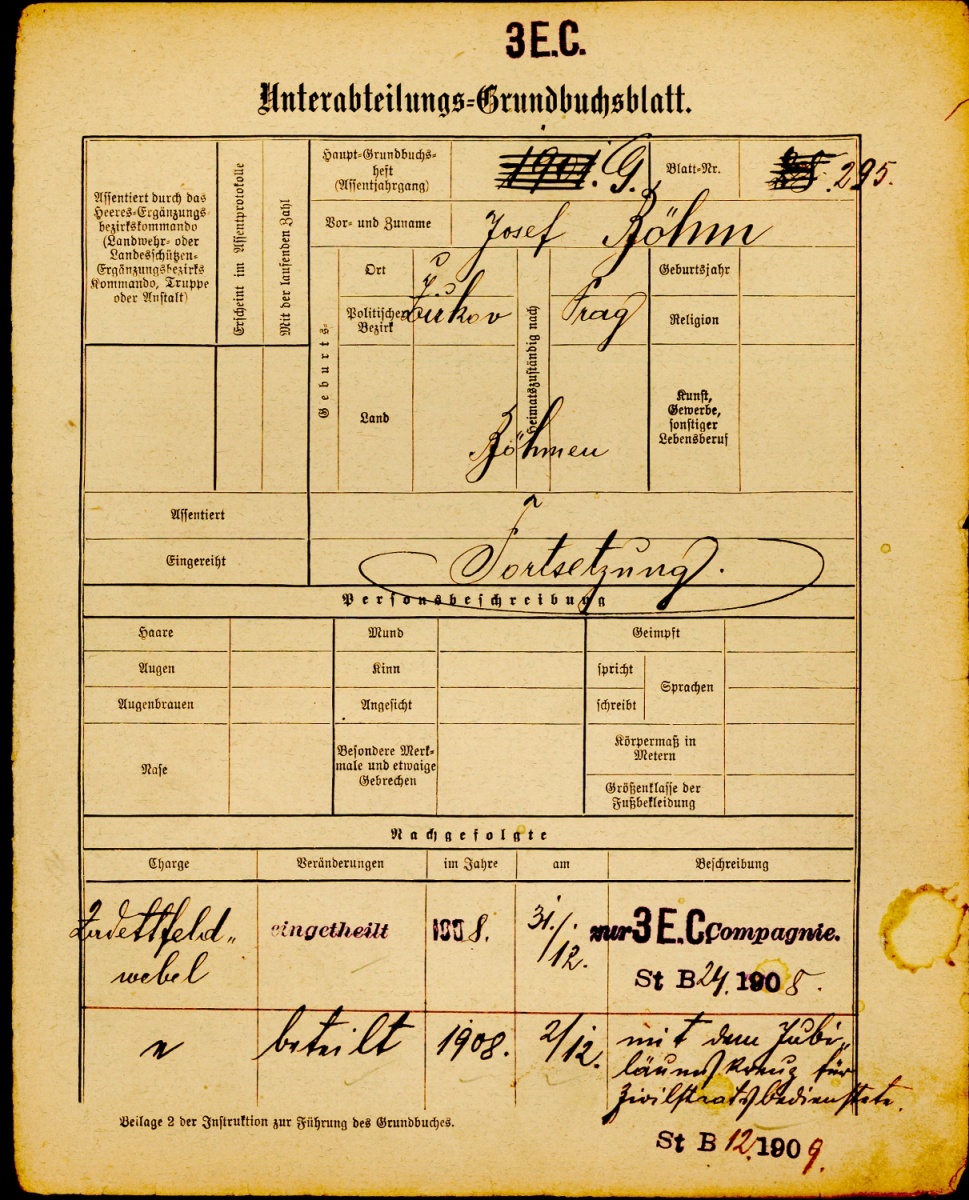 3 E.C.
Unterabteilungs-Grundbuchsblatt.
Assentiert durch das
Heeres-Ergänzungs-
bezirkskommando
(Landwehr- oder
Landesschützen-
Ergänzungsbezirks
Kommando, Truppe
oder Anstalt)
Erscheint im Assentprotokolle
Mit der laufenden Zahl
Haupt-Grundbuchs-
heft
(Assentjahrgang)
1901. G.
Blatt-Nr.
295.
Vor- und Zuname
Josef Böhm
Geburts-
Ort
Politischer
Bezirk
Žižkov
Land
Heimatszuständig nach
Prag
Böhmen
Geburtsjahr
Religion
Kunst,
Gewerbe,
sonstiger
Lebensberuf
Assentiert
Eingereiht
Fortsetzung.
Personsbeschreibung
Haare
Mund
Geimpft
Augen
Kinn
spricht
Sprachen
Augenbrauen
Angesicht
schreibt
Nase
Besondere Merk-
male und etwaige
Gebrechen
Körpermaß in
Metern
Größenklasse der
Fußbekleidung
Nachgefolgte
Charge
Veränderungen
im Jahre
am
Beschreibung
Kadettfeld„
webel
eingetheilt
1908.
31./12.
zur 3 E.C. Compagnie.
St B 24. 1908.
"
beteilt
1908.
2/12.
mit dem Jubi„
läumskreuz für
Zivilstaatsbedienstete.
Beilage 2 der Instruktion zur Führung des Grundbuches.
St B 12. 1909.